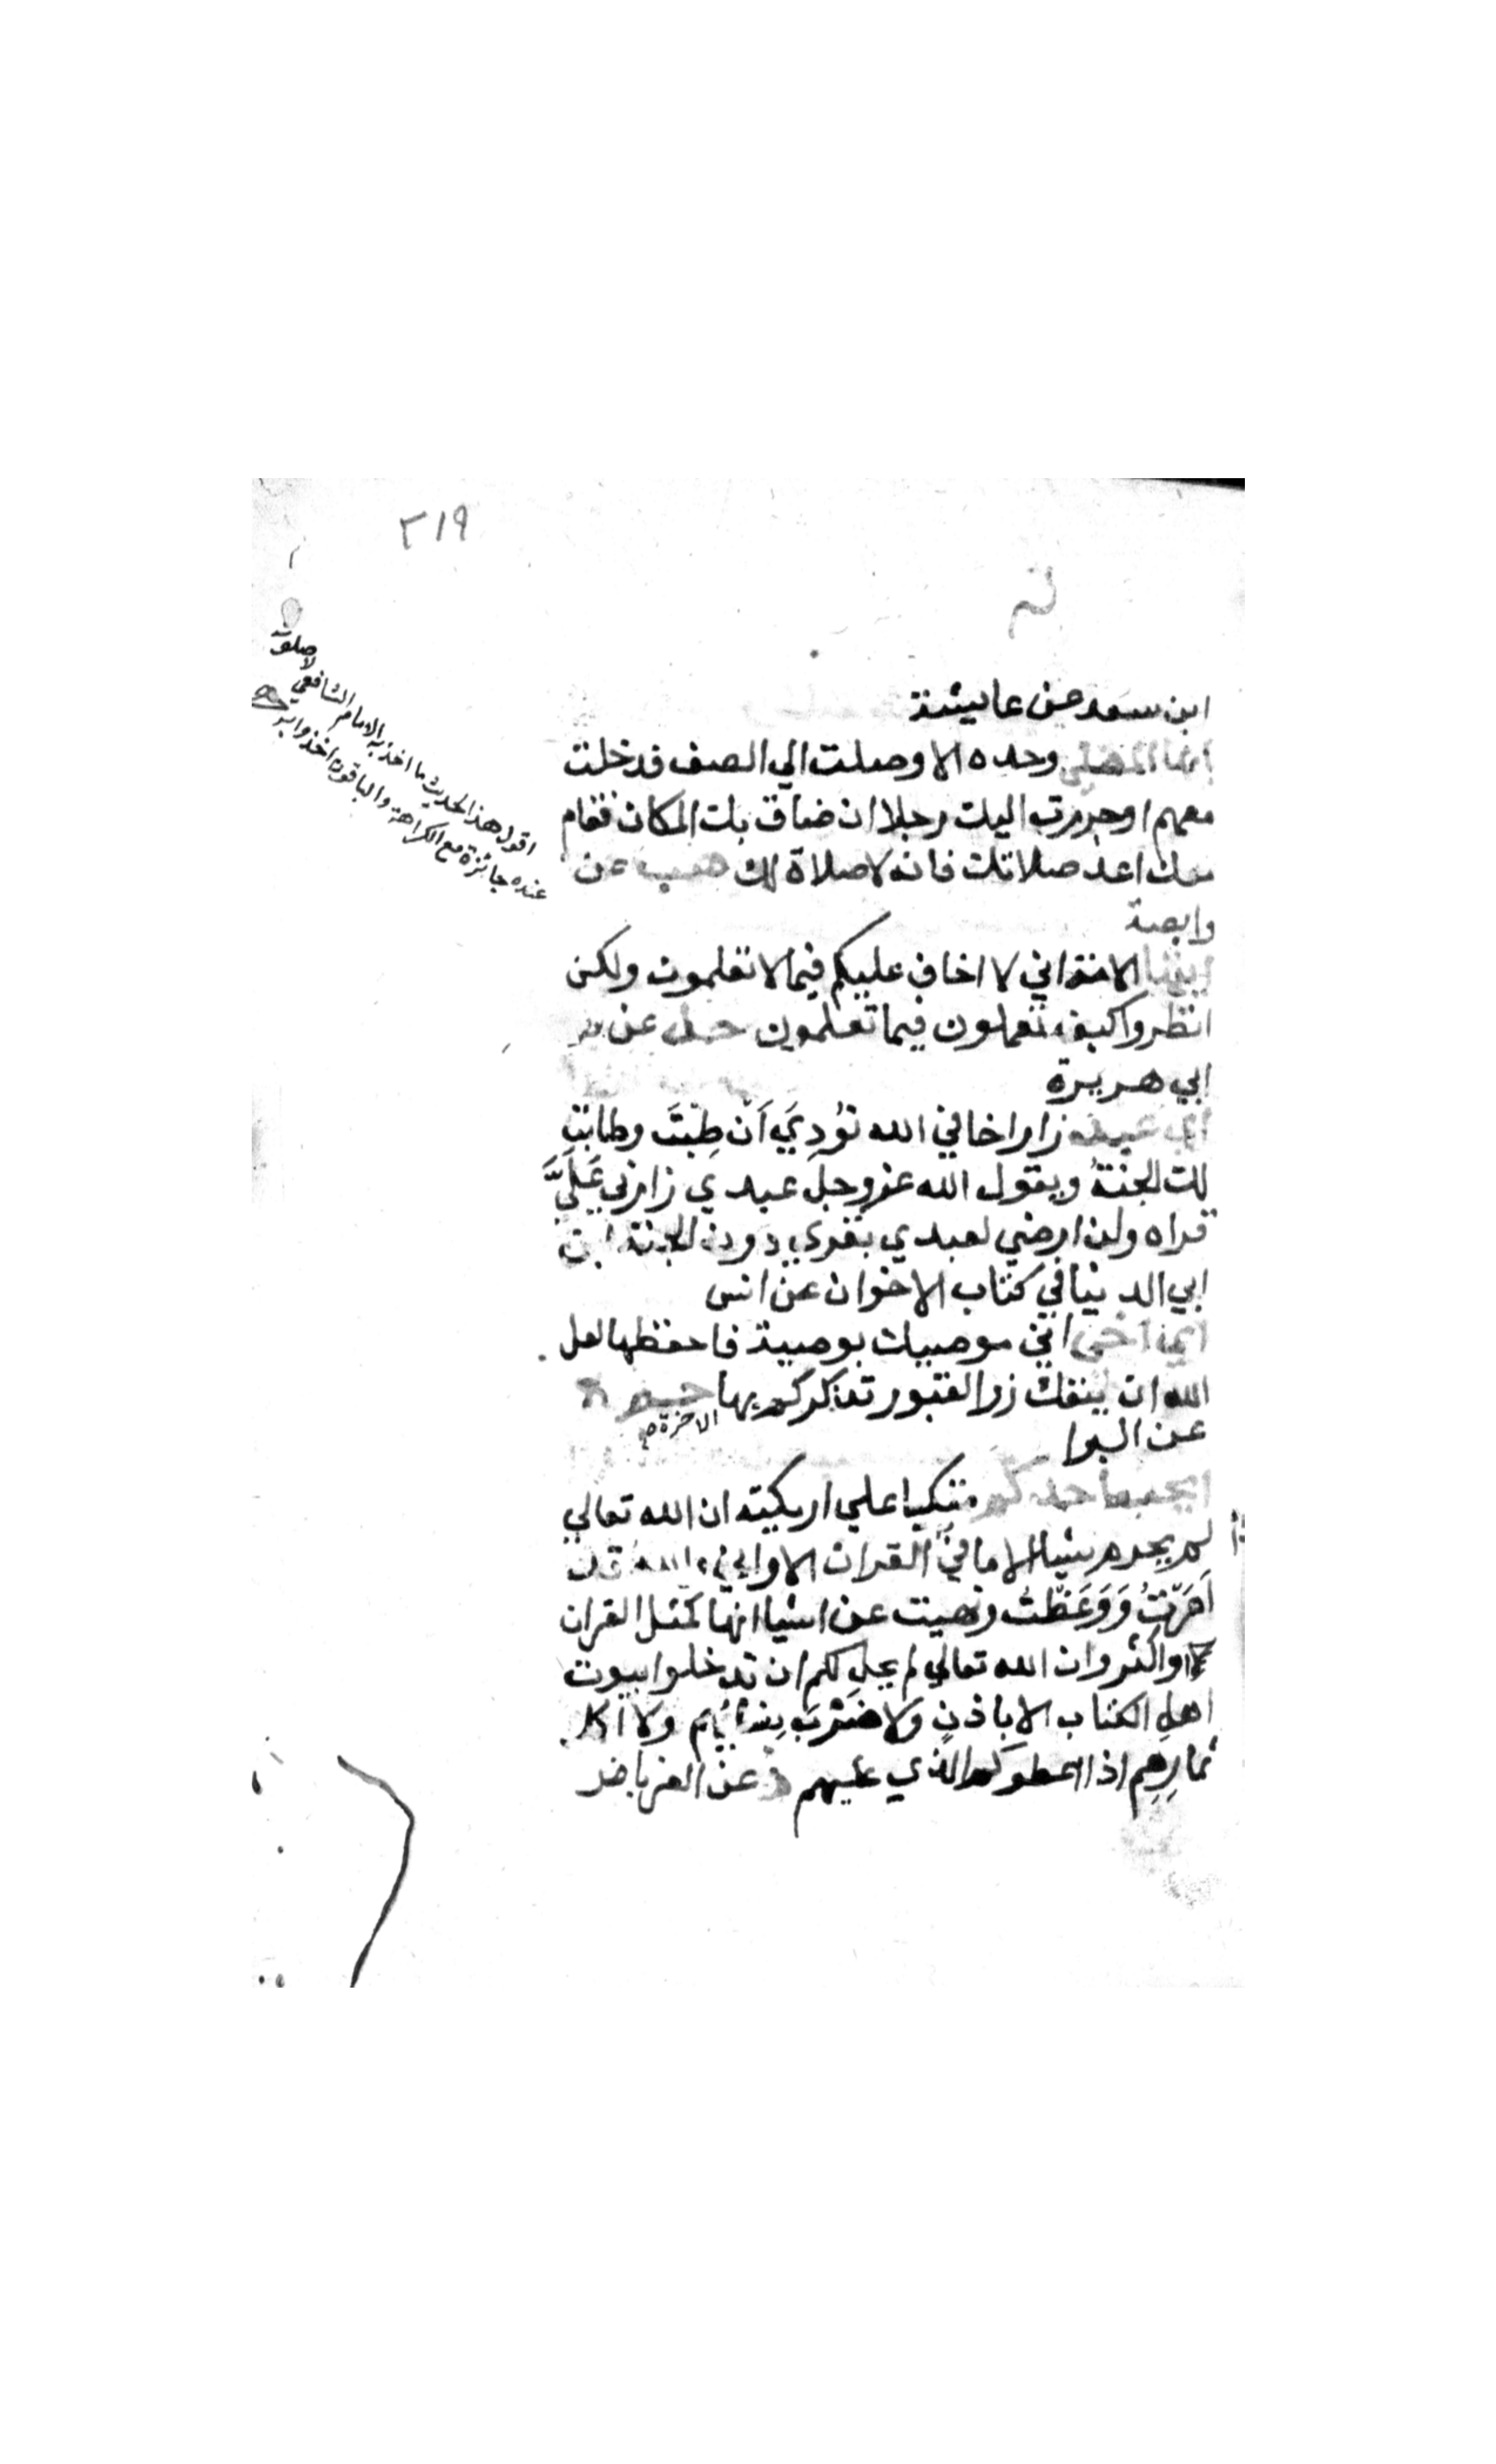 ٢١٩
ابن سعد عن عايشة
ايها المصلي وحده الا وصلت الي الصف فدخلت
معهم او جررت اليك رجلا ان ضاق بك المكان فقام
معك اعد صلاتك فانه لا صلاة لك عن
وابصة
ايتها الامة اني لا اخاف عليكم فيما لا تعلمون ولكن
انظروا كيف تعملون فيما تعلمون حل عن
ابي هريرة
اي عبد زار اخا في الله نُودِيَ اَنْ طِبْتَ وطابت
لك الجنةُ ويقول الله عز وجل عبدي زارني عَلَيَّ
قراه ولن ارضي لعبدي بقري دون الجنة ابن
ابي الدنيا في كتاب الاخوان عن انس
اي اخي اني موصيك بوصية فاحفظها لعل
الله ان ينفعك زر القبور تذكر بها
الاخرة صح
عن البرا
ايحسب احدكم متكيا علي اريكته ان الله تعالي
لم يحرم شيا الا ما في القران الا واني والله قد
اَمَرْتُ وَوَعَظْتُ ونهيت عن اشيا انها كمثل القران
او اكثر وان الله تعالي لم يحل لكم ان تدخلوا بيوت
اهل الكتاب الا باذنٍ ولا ضَرْبَ ولا اكل
ثمارِهِم اذا اعطوكم الذي عليهم د عن العرباض
اقول هذا الحديث ما اخذ به الامام الشافعي لا صلوة
عنده جائزة مع الكراهة والباقون اخذوا به